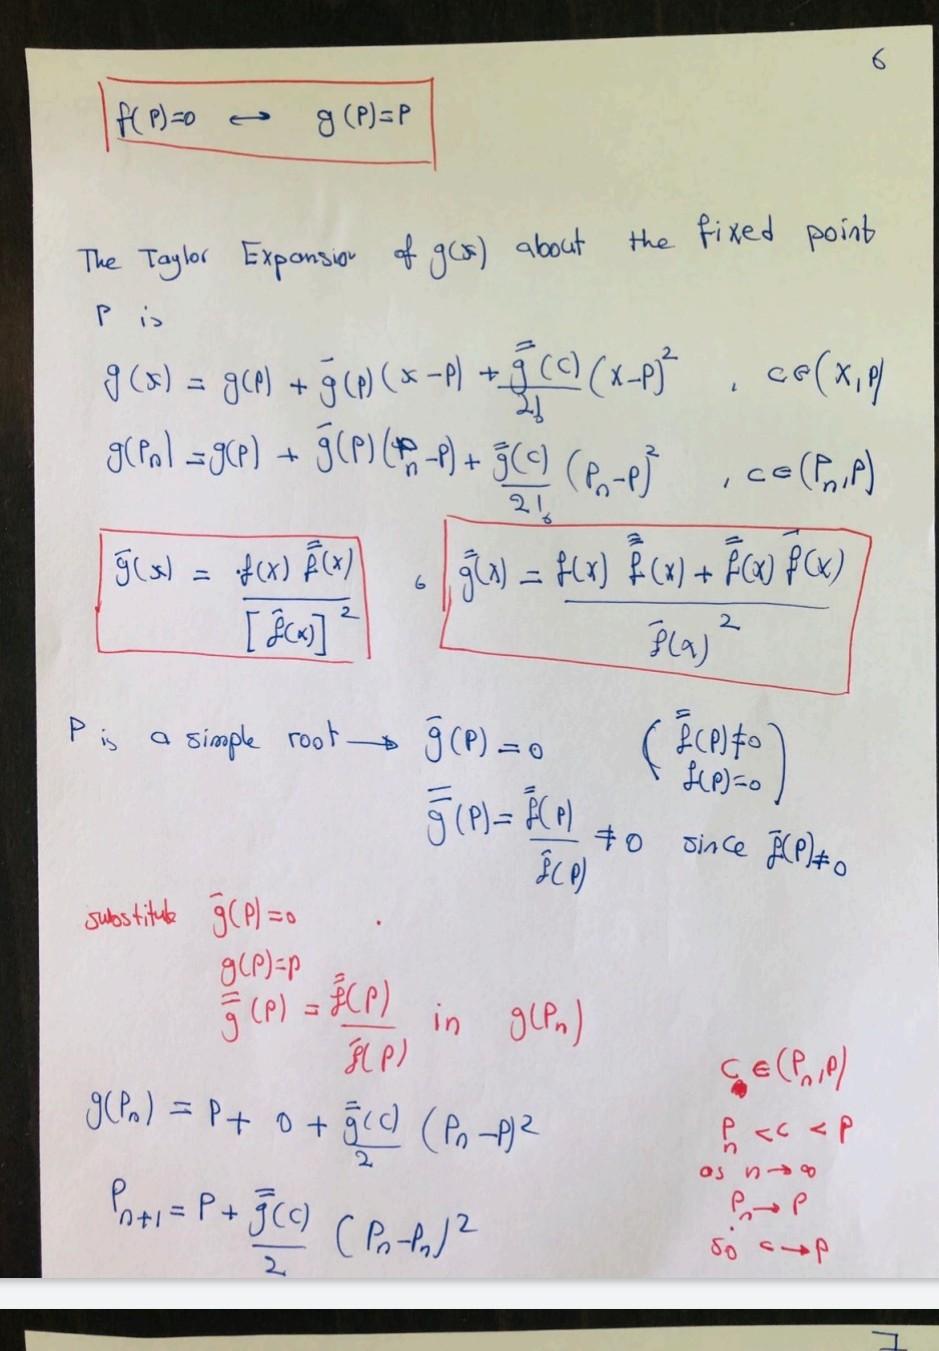 6
f(P)=0 ↔ g(P)=P
The Taylor Expansion of g(x) about the fixed point
P is
g(x) = g(P) + g̅(P)(x-P) + g̿(c)/2! (x-P)² , c∈(x,P)
g(Pₙ) = g(P) + g̅(P)(Pₙ-P) + g̿(c)/2! (Pₙ-P)² , c∈(Pₙ,P)
g̅(x) = f(x) f̿(x) / [f̅(x)]² , g̿(x) = f(x) f̿̅(x) + f̿(x) f̅(x) / f̅(x)²
P is a simple root → g̅(P) = 0 ( f̿(P)≠0
f(P)=0 )
g̿(P) = f̿(P) / f̅(P) ≠ 0 since f̅(P)≠0
substitute g̅(P)=0
g(P)=P
g̿(P) = f̿(P) / f̅(P) in g(Pₙ)
c ∈ (Pₙ,P)
g(Pₙ) = P + 0 + g̿(c)/2 (Pₙ-P)²
Pₙ < c < P
as n→∞
Pₙ₊₁ = P + g̿(c)/2 (Pₙ-Pₙ)²
Pₙ→P
so c→P
7